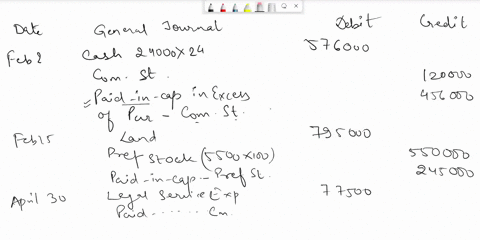 Date General Journal Debit Credit
Feb 2 Cash 24000×24 576000
Com. St. 120000
= Paid-in-cap in Excess 456000
of Par - Com. St.
Feb 15 Land 795000
Pref Stock (5500×100) 550000
Paid-in-cap - Pref St. 245000
April 30 Legal Service Exp 77500
Paid ...... Cm.